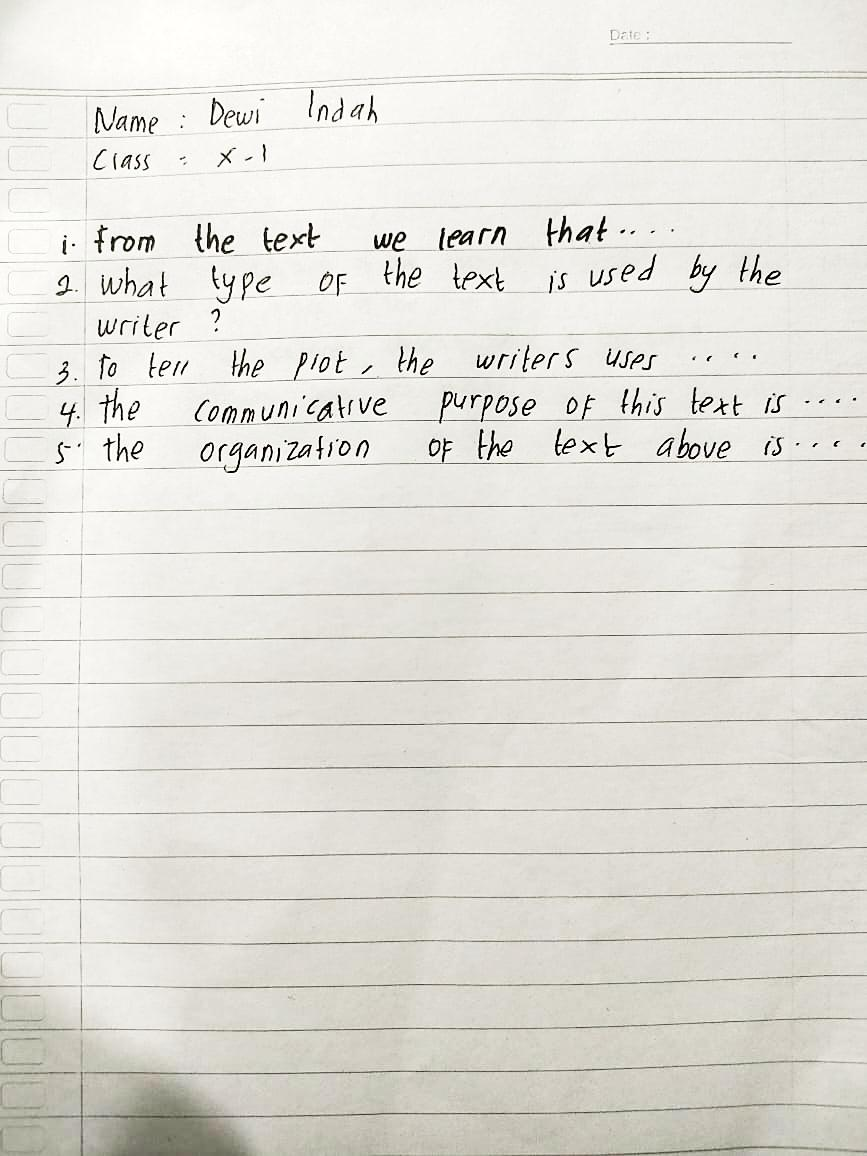 Date :
Name : Dewi Indah
Class : X-1
1. From the text we learn that.....
2. what type OF the text is used by the
writer ?
3. To tell the plot, the writers uses .....
4. the communicative purpose OF this text is ....
5. the organization OF the text above is.....